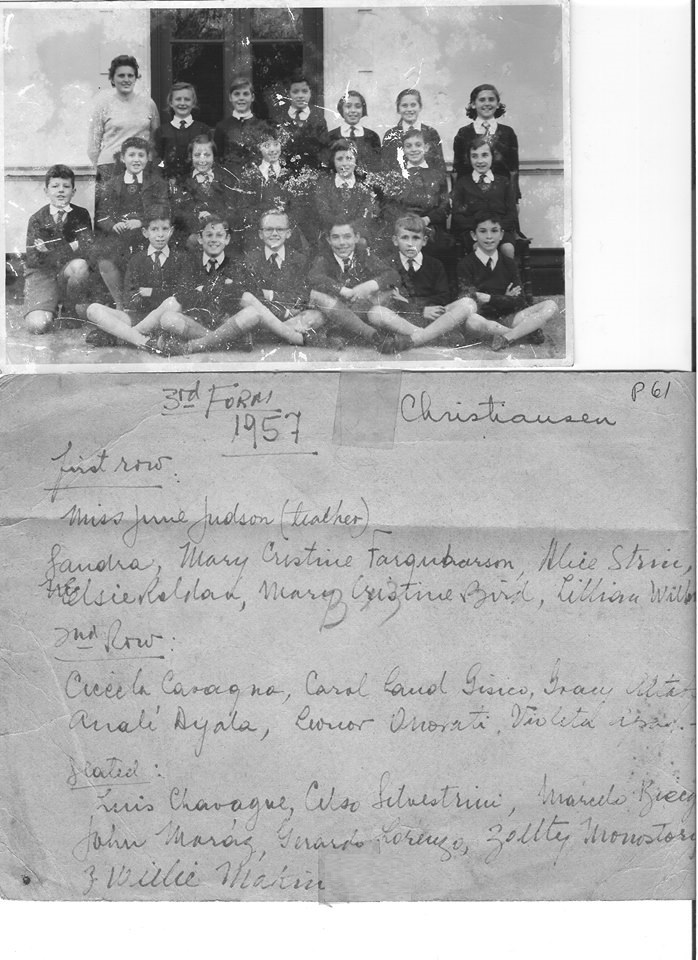 3rd FORM
1957
Christiansen
P 61
first row:
Miss June Judson (teacher)
Sandra, Mary Cristine Farquharson, Alice Strin,
Elsie Roldan, Mary Cristine Bird, Lillian
2nd Row:
Cavagna, Carol Land Gisico,
Analí Ayala, Leonor Onorati, Violeta
Seated:
Luis Chavagne, Celso Silvestrini, Marcelo
John Maráz, Gerardo Lorenzo, Zoltty Monostori
y Willie Makin